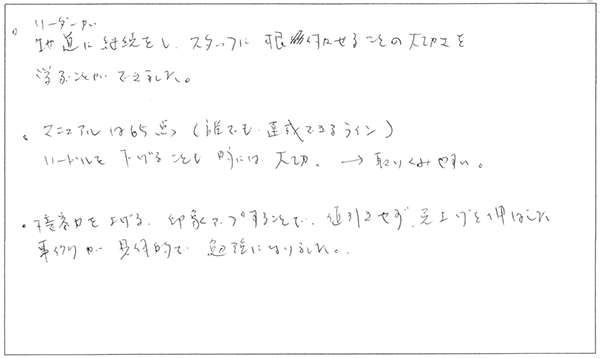 リーダーが
地道に継続をし、スタッフに根付かせることの大切さを
学ぶことができました。
・マニュアルは65点（誰でも達成できるライン）
ハードルを下げることも時には大切、→取りくみやすい。
・接客力を上げる、印象UPすることで、値引きせず、売上げを伸ばした
事例が具体的で勉強になりました。